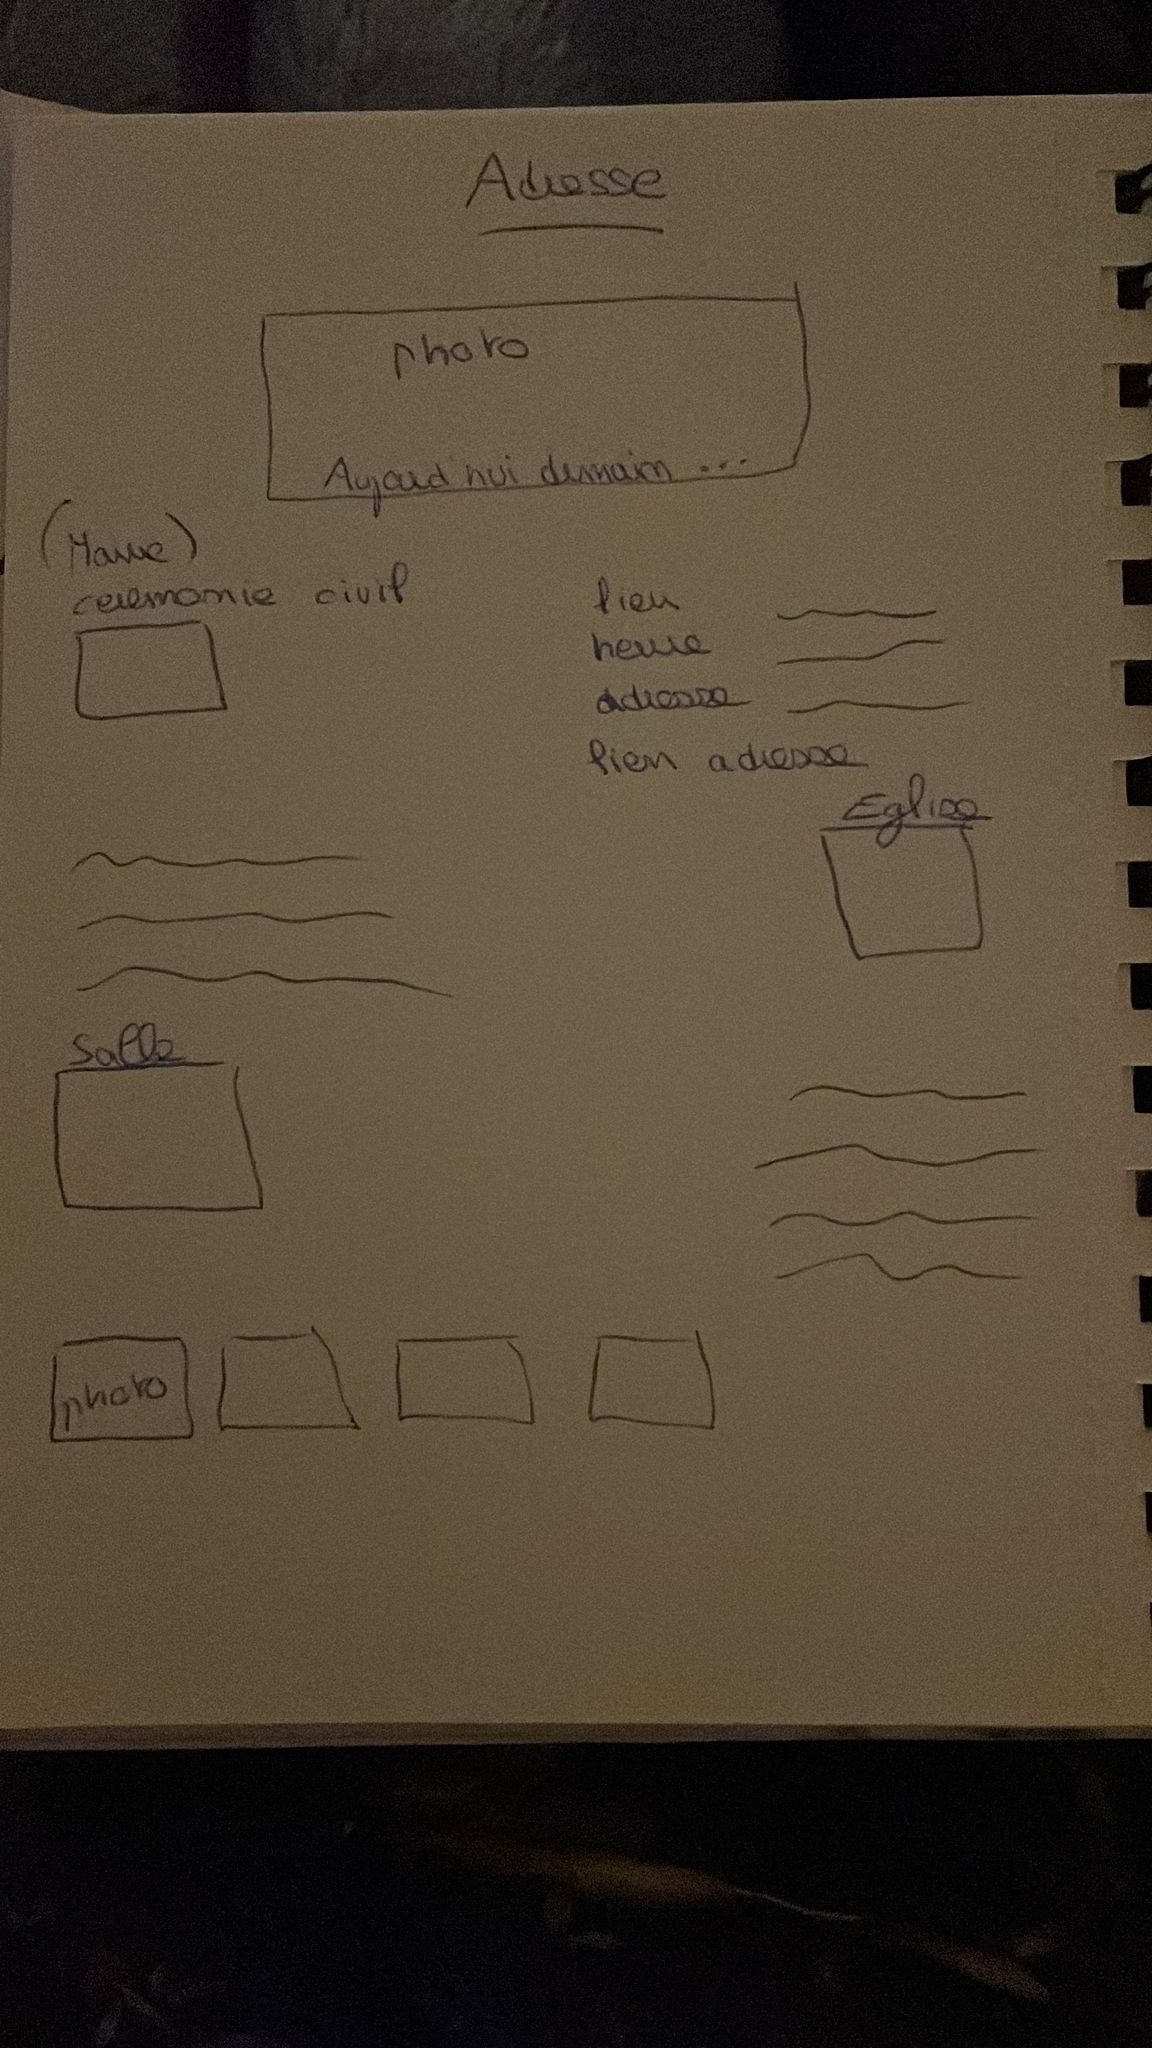 Adresse
photo
Aujourd'hui demain ...
(Mairie)
ceremonie civil
lieu
heure
adresse
lien adresse
Eglise
Salle
photo